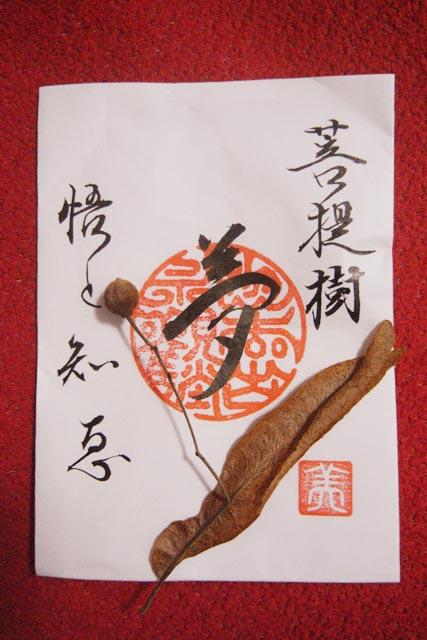 菩提樹
夢
悟と知恵